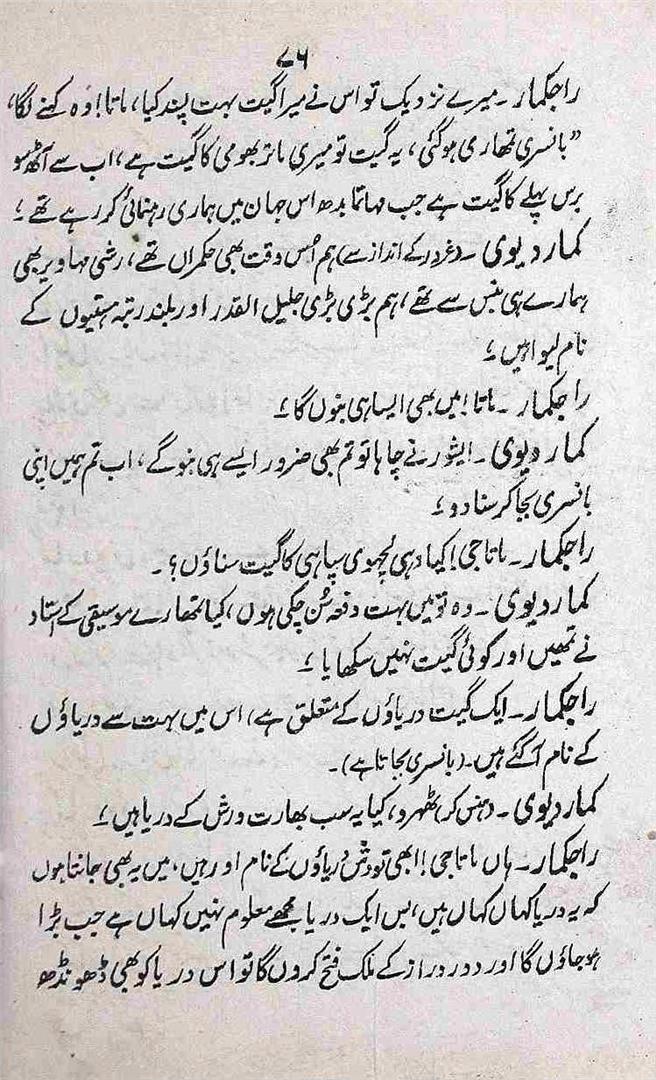 ۷۶
راجکمار ۔ میرے نزدیک تو اس نے میرا گیت بہت پسند کیا، ماتا! وہ کہنے لگا،
”بانسری تمھاری ہو گئی، یہ گیت تو میری ماتر بھومی کا گیت ہے، اب سے آٹھ سو
برس پہلے کا گیت ہے جب مہاتما بدھ اس جہان میں ہماری رہنمائی کر رہے تھے ؛
کمار دیوی ۔ (غرور کے انداز سے) ہم اُس وقت بھی حکمراں تھے، رشی مہاویر بھی
ہمارے ہی بنس سے تھے، ہم بڑی بڑی جلیل القدر اور بلند رتبہ ہستیوں کے
نام لیوا ہیں ؛
راجکمار ۔ ماتا! میں بھی ایسا ہی بنوں گا ؛
کمار دیوی ۔ ایشور نے چاہا تو تم بھی ضرور ایسے ہی بنو گے، اب تم ہمیں اپنی
بانسری بجا کر سنا دو ؛
راجکمار ۔ ماتا جی! کیا وہی لچھوی سپاہی کا گیت سناؤں؟ ۔
کمار دیوی ۔ وہ تو میں بہت دفعہ سُن چکی ہوں، کیا تمھارے موسیقی کے استاد
نے تمھیں اور کوئی گیت نہیں سکھایا ؛
راجکمار ۔ ایک گیت دریاؤں کے متعلق ہے) اس میں بہت سے دریاؤں
کے نام آ گئے ہیں۔ (بانسری بجاتا ہے) ۔
کمار دیوی ۔ (ہنس کر) ٹھہرو، کیا یہ سب بھارت ورش کے دریا ہیں ؛
راجکمار ۔ ہاں ماتا جی!! ابھی تو دش دریاؤں کے نام اور ہیں، میں یہ بھی جانتا ہوں
کہ یہ دریا کہاں کہاں ہیں، بس ایک دریا مجھے معلوم نہیں کہاں ہے جب بڑا
ہو جاؤں گا اور دور دراز کے ملک فتح کروں گا تو اس دریا کو بھی ڈھونڈھ